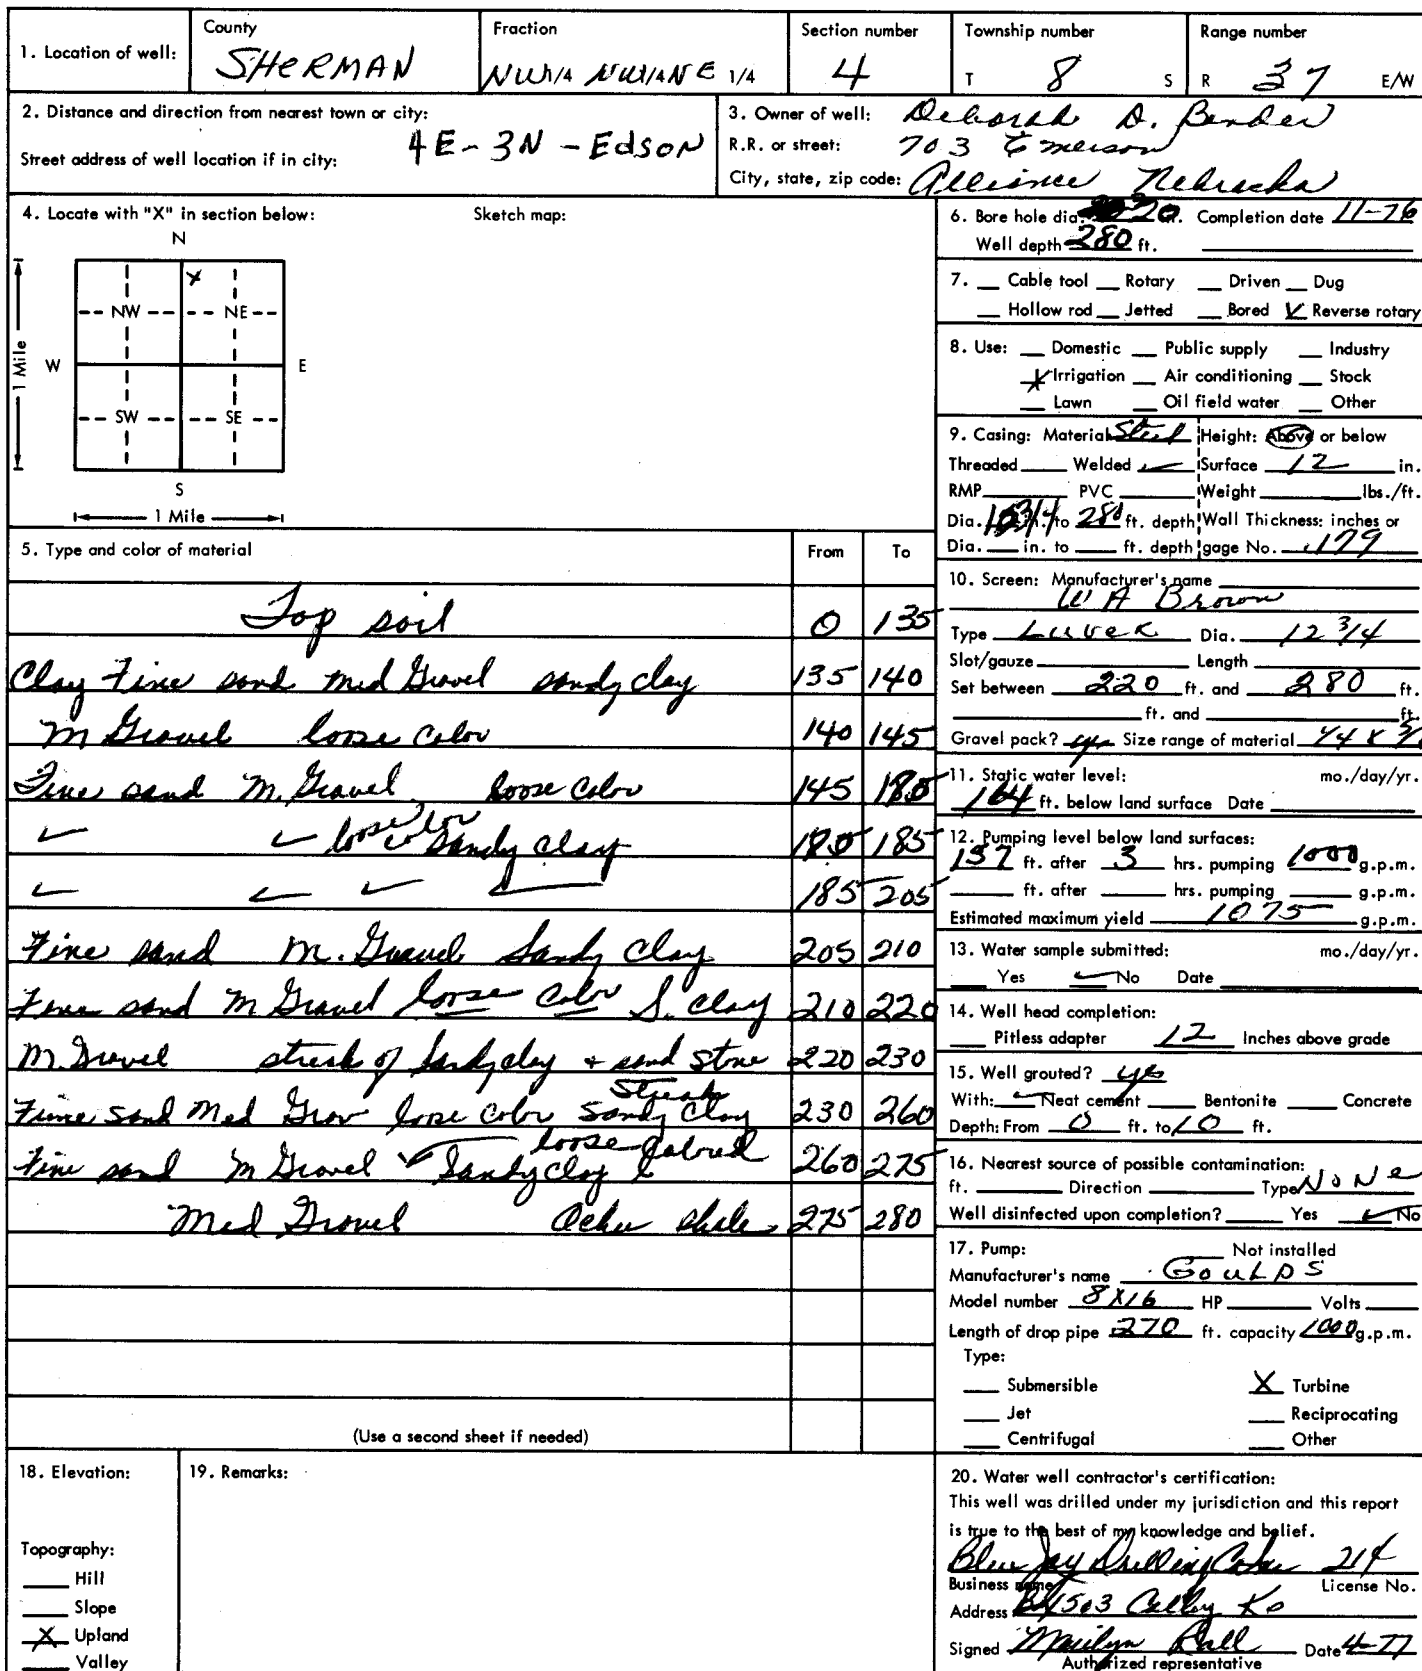 1. Location of well:
County
SHERMAN
Fraction
NW1/4 NW1/4 NE 1/4
Section number
4
Township number
T 8 S
Range number
R 37 E/W
2. Distance and direction from nearest town or city:
4E-3N-Edson
Street address of well location if in city:
3. Owner of well: Deborah D. Bender
R.R. or street: 703 Emerson
City, state, zip code: Alliance Nebraska
4. Locate with "X" in section below:
Sketch map:
N
X
NW NE
W E
1 Mile
SW SE
S
1 Mile
5. Type and color of material From To
Top soil 0 135
Clay Fine sand Med Gravel sandy clay 135 140
M Gravel loose color 140 145
Fine sand M. Gravel loose color 145 180
✓ ✓ loose color Sandy clay 180 185
✓ ✓ ✓ 185 205
Fine sand M. Gravel Sandy Clay 205 210
Fine sand M Gravel loose color S. clay 210 220
M. Gravel streak of Sandy clay + sand stone 220 230
Fine sand Med Grav loose color Streak Sandy Clay 230 260
Fine sand M Gravel ✓ Sandy Clay loose colored 260 275
Med Gravel shale 275 280
(Use a second sheet if needed)
6. Bore hole dia. 20 in. Completion date 11-76
Well depth 280 ft.
7. Cable tool Rotary Driven Dug
Hollow rod Jetted Bored ✓ Reverse rotary
8. Use: Domestic Public supply Industry
X Irrigation Air conditioning Stock
Lawn Oil field water Other
9. Casing: Material Steel Height: Above or below
Threaded Welded ✓ Surface 12 in.
RMP PVC Weight lbs./ft.
Dia. 3/4 in. to 280 ft. depth Wall Thickness: inches or
Dia. in. to ft. depth gage No. .179
10. Screen: Manufacturer's name
W A Brown
Type Luvek Dia. 12 3/4
Slot/gauze Length
Set between 220 ft. and 280 ft.
ft. and ft.
Gravel pack? yes Size range of material 1/4 x
11. Static water level: mo./day/yr.
164 ft. below land surface Date
12. Pumping level below land surfaces:
157 ft. after 3 hrs. pumping 1000 g.p.m.
ft. after hrs. pumping g.p.m.
Estimated maximum yield 1075 g.p.m.
13. Water sample submitted: mo./day/yr.
Yes ✓ No Date
14. Well head completion:
Pitless adapter 12 Inches above grade
15. Well grouted? yes
With: ✓ Neat cement Bentonite Concrete
Depth: From 0 ft. to 10 ft.
16. Nearest source of possible contamination:
ft. Direction Type None
Well disinfected upon completion? Yes ✓ No
17. Pump: Not installed
Manufacturer's name GOULDS
Model number 8X16 HP Volts
Length of drop pipe 270 ft. capacity 1000 g.p.m.
Type:
Submersible X Turbine
Jet Reciprocating
Centrifugal Other
18. Elevation:
Topography:
Hill
Slope
X Upland
Valley
19. Remarks:
20. Water well contractor's certification:
This well was drilled under my jurisdiction and this report
is true to the best of my knowledge and belief.
Blue Jay Drilling 214
Business name License No.
Address Bx 503 Colby Ks
Signed Marilyn Ball Date 4-77
Authorized representative